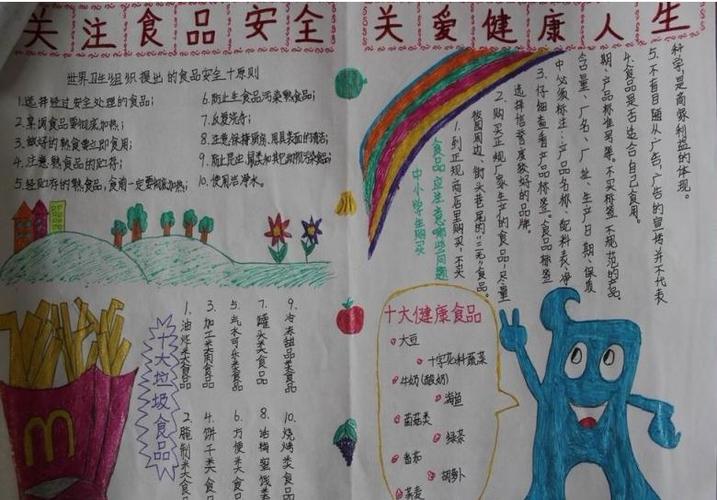 关注食品安全
关爱健康人生
世界卫生组织提出的食品安全十原则
1.选择经过安全处理的食品;
2.烹调食品要彻底加热;
3.做好的熟食要立即食用;
4.注意熟食品的贮存;
5.经贮存的熟食品,食前一定要彻底加热;
6.防止生食品污染熟食品;
7.反复洗手;
8.注意保持厨房用具表面的清洁;
9.防止昆虫、鼠类和其它动物污染食品;
10.使用洁净水。
十大垃圾食品
1.油炸类食品
2.腌制类食品
3.加工类肉食品
4.饼干类食品
5.汽水可乐类食品
6.方便类食品
7.罐头类食品
8.话梅蜜饯类
9.冷冻甜品类食品
10.烧烤类食品
M
中小学生购买
食品应注意哪些问题
1.到正规商店里购买,不买
校园周边、街头巷尾的“三无”食品。
2.购买正规厂家生产的食品,尽量
选择信誉度较好的品牌。
3.仔细查看产品标签。食品标签
中必须标注:产品名称、配料表、净
含量、厂名、厂址、生产日期、保质
期、产品标准号等。不买标签不规范的产品。
4.食品是否适合自己食用。
5.不盲目随从广告,广告的宣传并不代表
科学,是商家利益的体现。
十大健康食品
大豆
十字花科蔬菜
牛奶(酸奶)
海鱼
菌菇类
绿茶
番茄
胡萝卜
荞麦